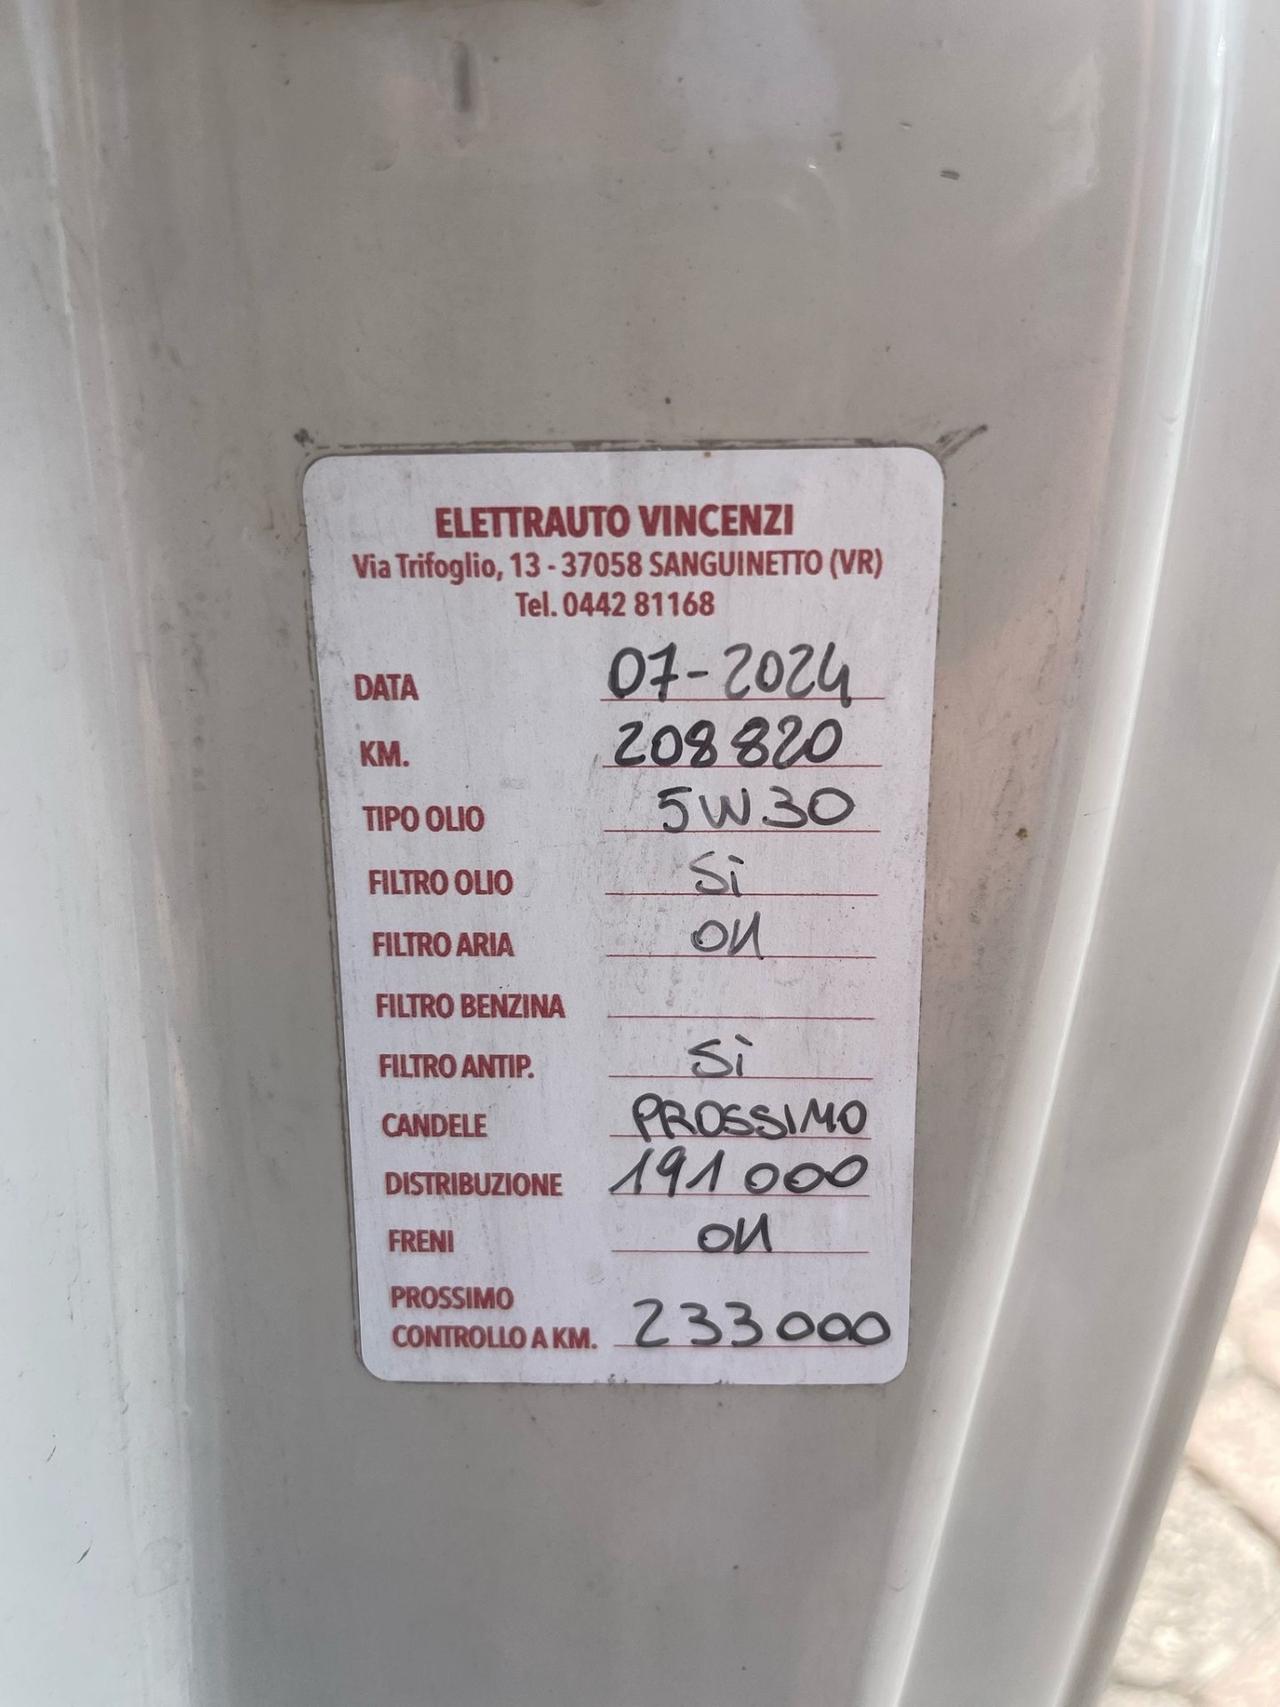 ELETTRAUTO VINCENZI
Via Trifoglio, 13 - 37058 SANGUINETTO (VR)
Tel. 0442 81168
DATA 07-2024
KM. 208820
TIPO OLIO 5W30
FILTRO OLIO Si
FILTRO ARIA OK
FILTRO BENZINA
FILTRO ANTIP. Si
CANDELE PROSSIMO
DISTRIBUZIONE 191000
FRENI OK
PROSSIMO
CONTROLLO A KM. 233000